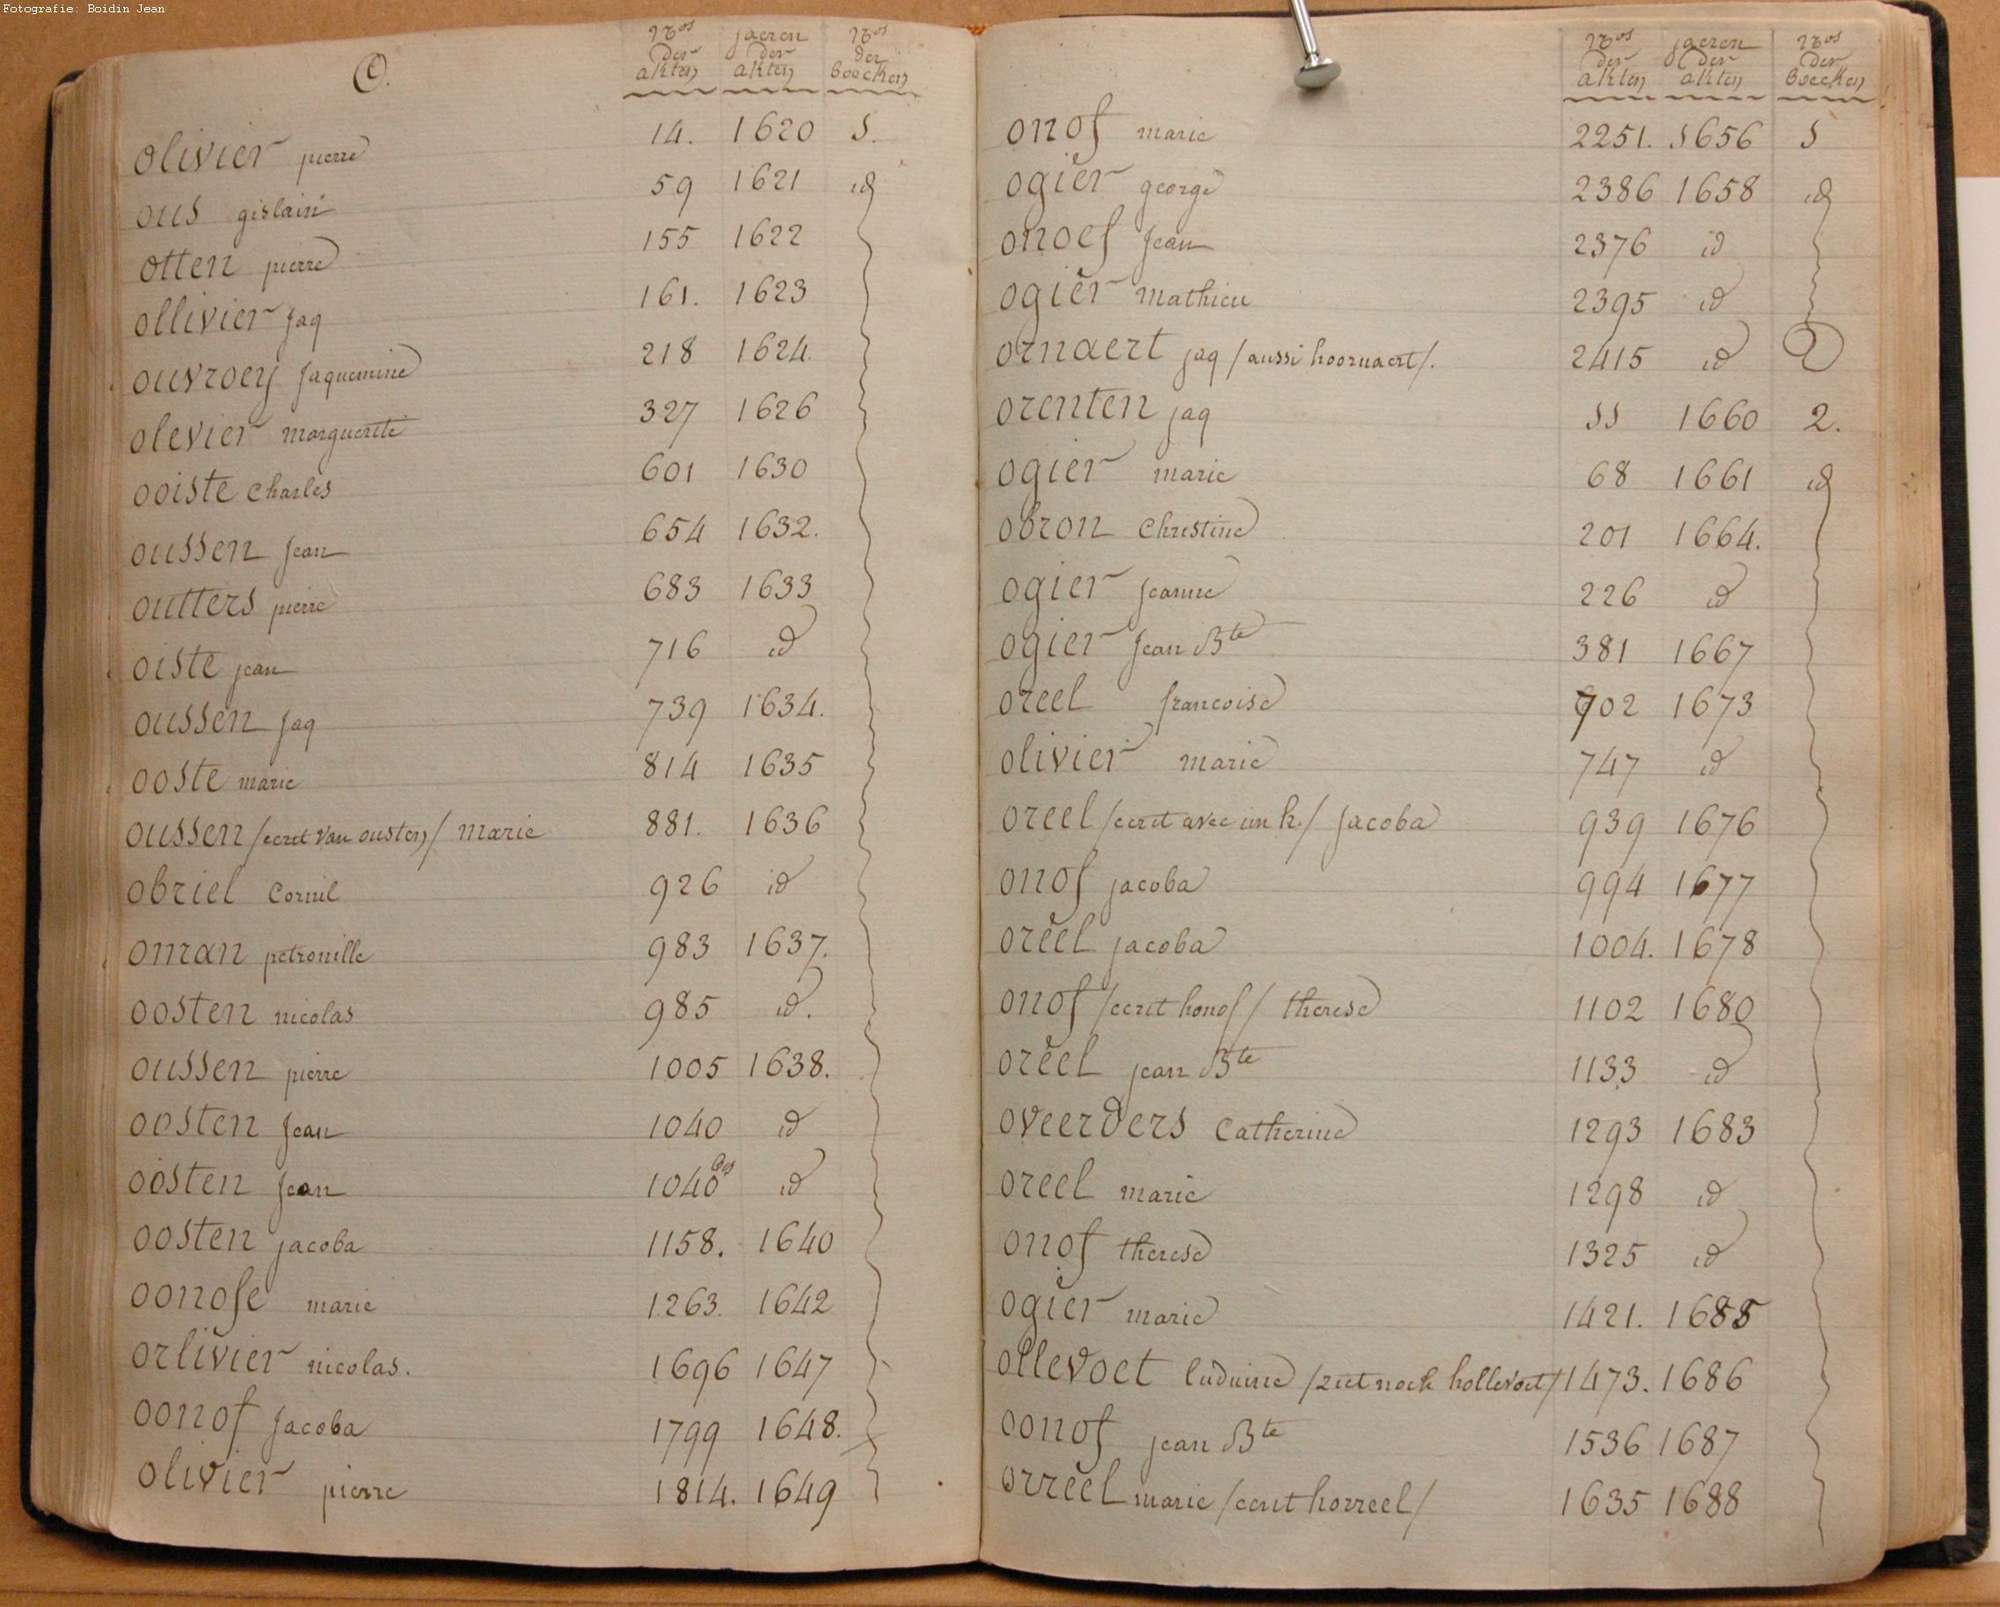 Fotografie: Boidin Jean
O.
nros der akten
jaeren der akten
nros der boecken
olivier pierre 14. 1620 1.
ous gislain 59 1621 id
otten pierre 155 1622
ollivier jaq 161. 1623
ouvroey jaquemine 218 1624.
olevier marguerite 327 1626
ooiste charles 601 1630
oussen jean 654 1632.
outters pierre 683 1633
oiste jean 716 id
oussen jaq 739 1634.
ooste marie 814 1635
oussen /ecrit van ousten/ marie 881. 1636
obriel cornil 926 id
onran petronille 983 1637.
oosten nicolas 985 id.
oussen pierre 1005 1638.
oosten jean 1040 id
oosten jean 1040 bis id
oosten jacoba 1158. 1640
oonofe marie 1263. 1642
orlivier nicolas. 1696 1647
oonof jacoba 1799 1648.
olivier pierre 1814. 1649
nros der akten
jaeren der akten
nros der boecken
onof marie 2251. 1656 1
ogier george 2386 1658 id
onoef jean 2376 id
ogier mathieu 2395 id
ornaert jaq /aussi hoornaert/. 2415 id
orenten jaq 11 1660 2.
ogier marie 68 1661 id
obron christine 201 1664.
ogier jeanne 226 id
ogier jean Bte 381 1667
oreel francoise 702 1673
olivier marie 747 id
oreel /ecrit avec un h./ jacoba 939 1676
onof jacoba 994 1677
oreel jacoba 1004. 1678
onof /ecrit honof/ therese 1102 1680
oreel jean Bte 1133 id
oveerders catherine 1293 1683
oreel marie 1298 id
onof therese 1325 id
ogier marie 1421. 1685
ollevoet luduine /ziet noch hollevoet/ 1473. 1686
oonof jean Bte 1536 1687
orreel marie /ecrit horreel/ 1635 1688